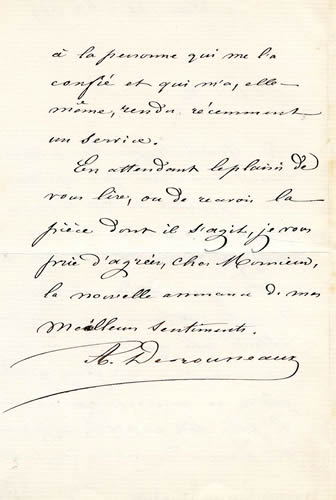 à la personne qui me l'a
confié et qui m'a, elle-
même, rendu récemment
un service.
En attendant le plaisir de
vous lire, ou de recevoir la
pièce dont il s'agit, je vous
prie d'agréer, cher Monsieur,
la nouvelle assurance de mes
meilleurs sentiments.
A. Desrousseaux